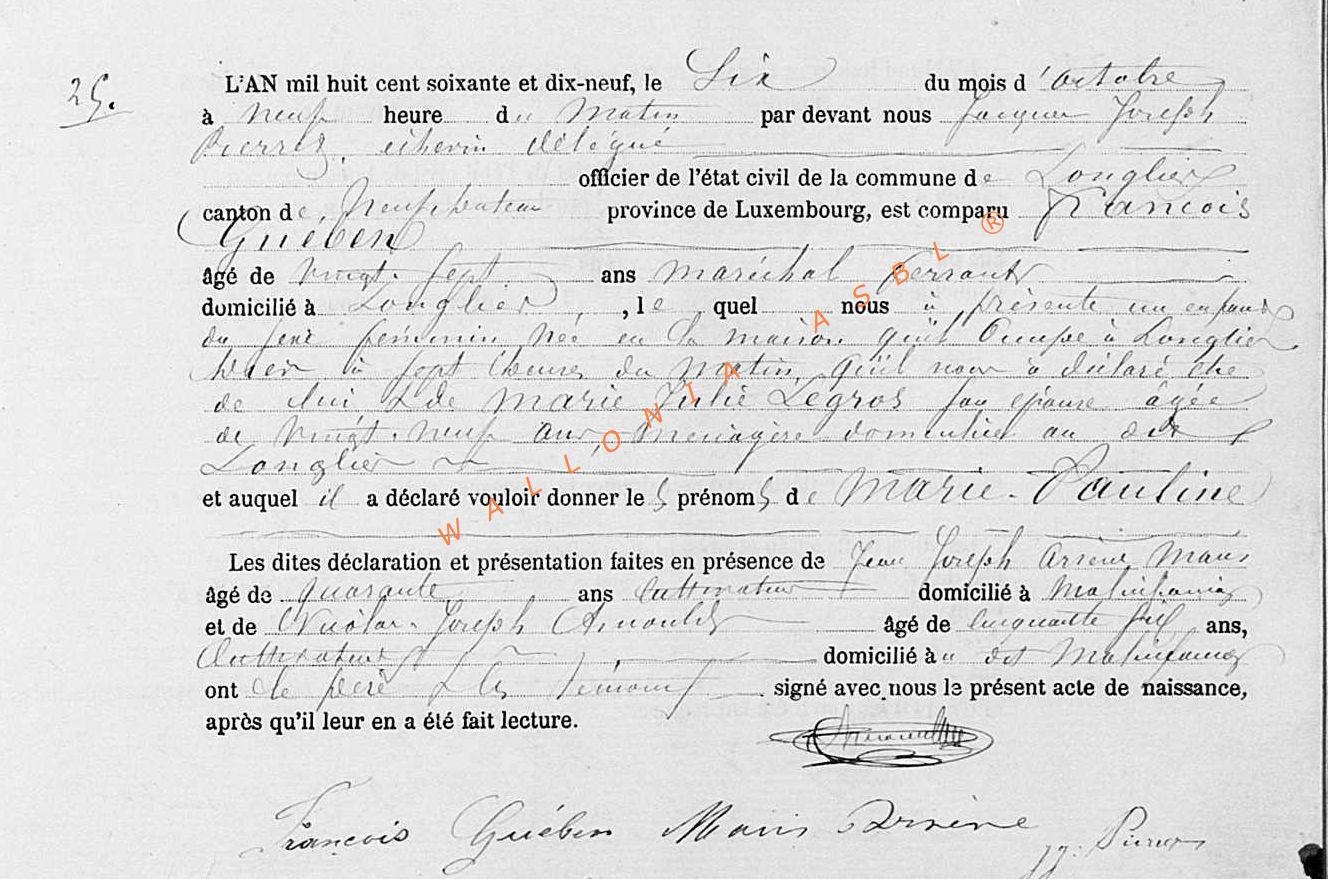 25.
L'AN mil huit cent soixante et dix-neuf, le Six du mois d'octobre
à neuf heure du matin par devant nous Jacques Joseph
Pierrez, échevin délégué
officier de l'état civil de la commune de Longlier
canton de Neufchateau province de Luxembourg, est comparu François
Guében
âgé de vingt-sept ans maréchal ferrant
domicilié à Longlier, le quel nous à présenté un enfant
du sexe féminin née en la maison qu'il occupe à Longlier
hier à sept heures du matin, qu'il nous à déclaré être
de lui & de Marie Julie Legros son épouse âgée
de vingt-neuf ans, ménagère domiciliée au dit
Longlier
et auquel il a déclaré vouloir donner les prénoms de Marie-Pauline
Les dites déclaration et présentation faites en présence de Jean Joseph Arsène Maus
âgé de quarante ans cultivateur domicilié à Molinfaing
et de Nicolas-Joseph Arnould âgé de cinquante six ans,
cultivateur domicilié au dit Molinfaing
ont le père & les témoins signé avec nous le présent acte de naissance,
après qu'il leur en a été fait lecture.
François Guében Maus Arsène
JJ. Pierrez
WALLONIA ASBL ®